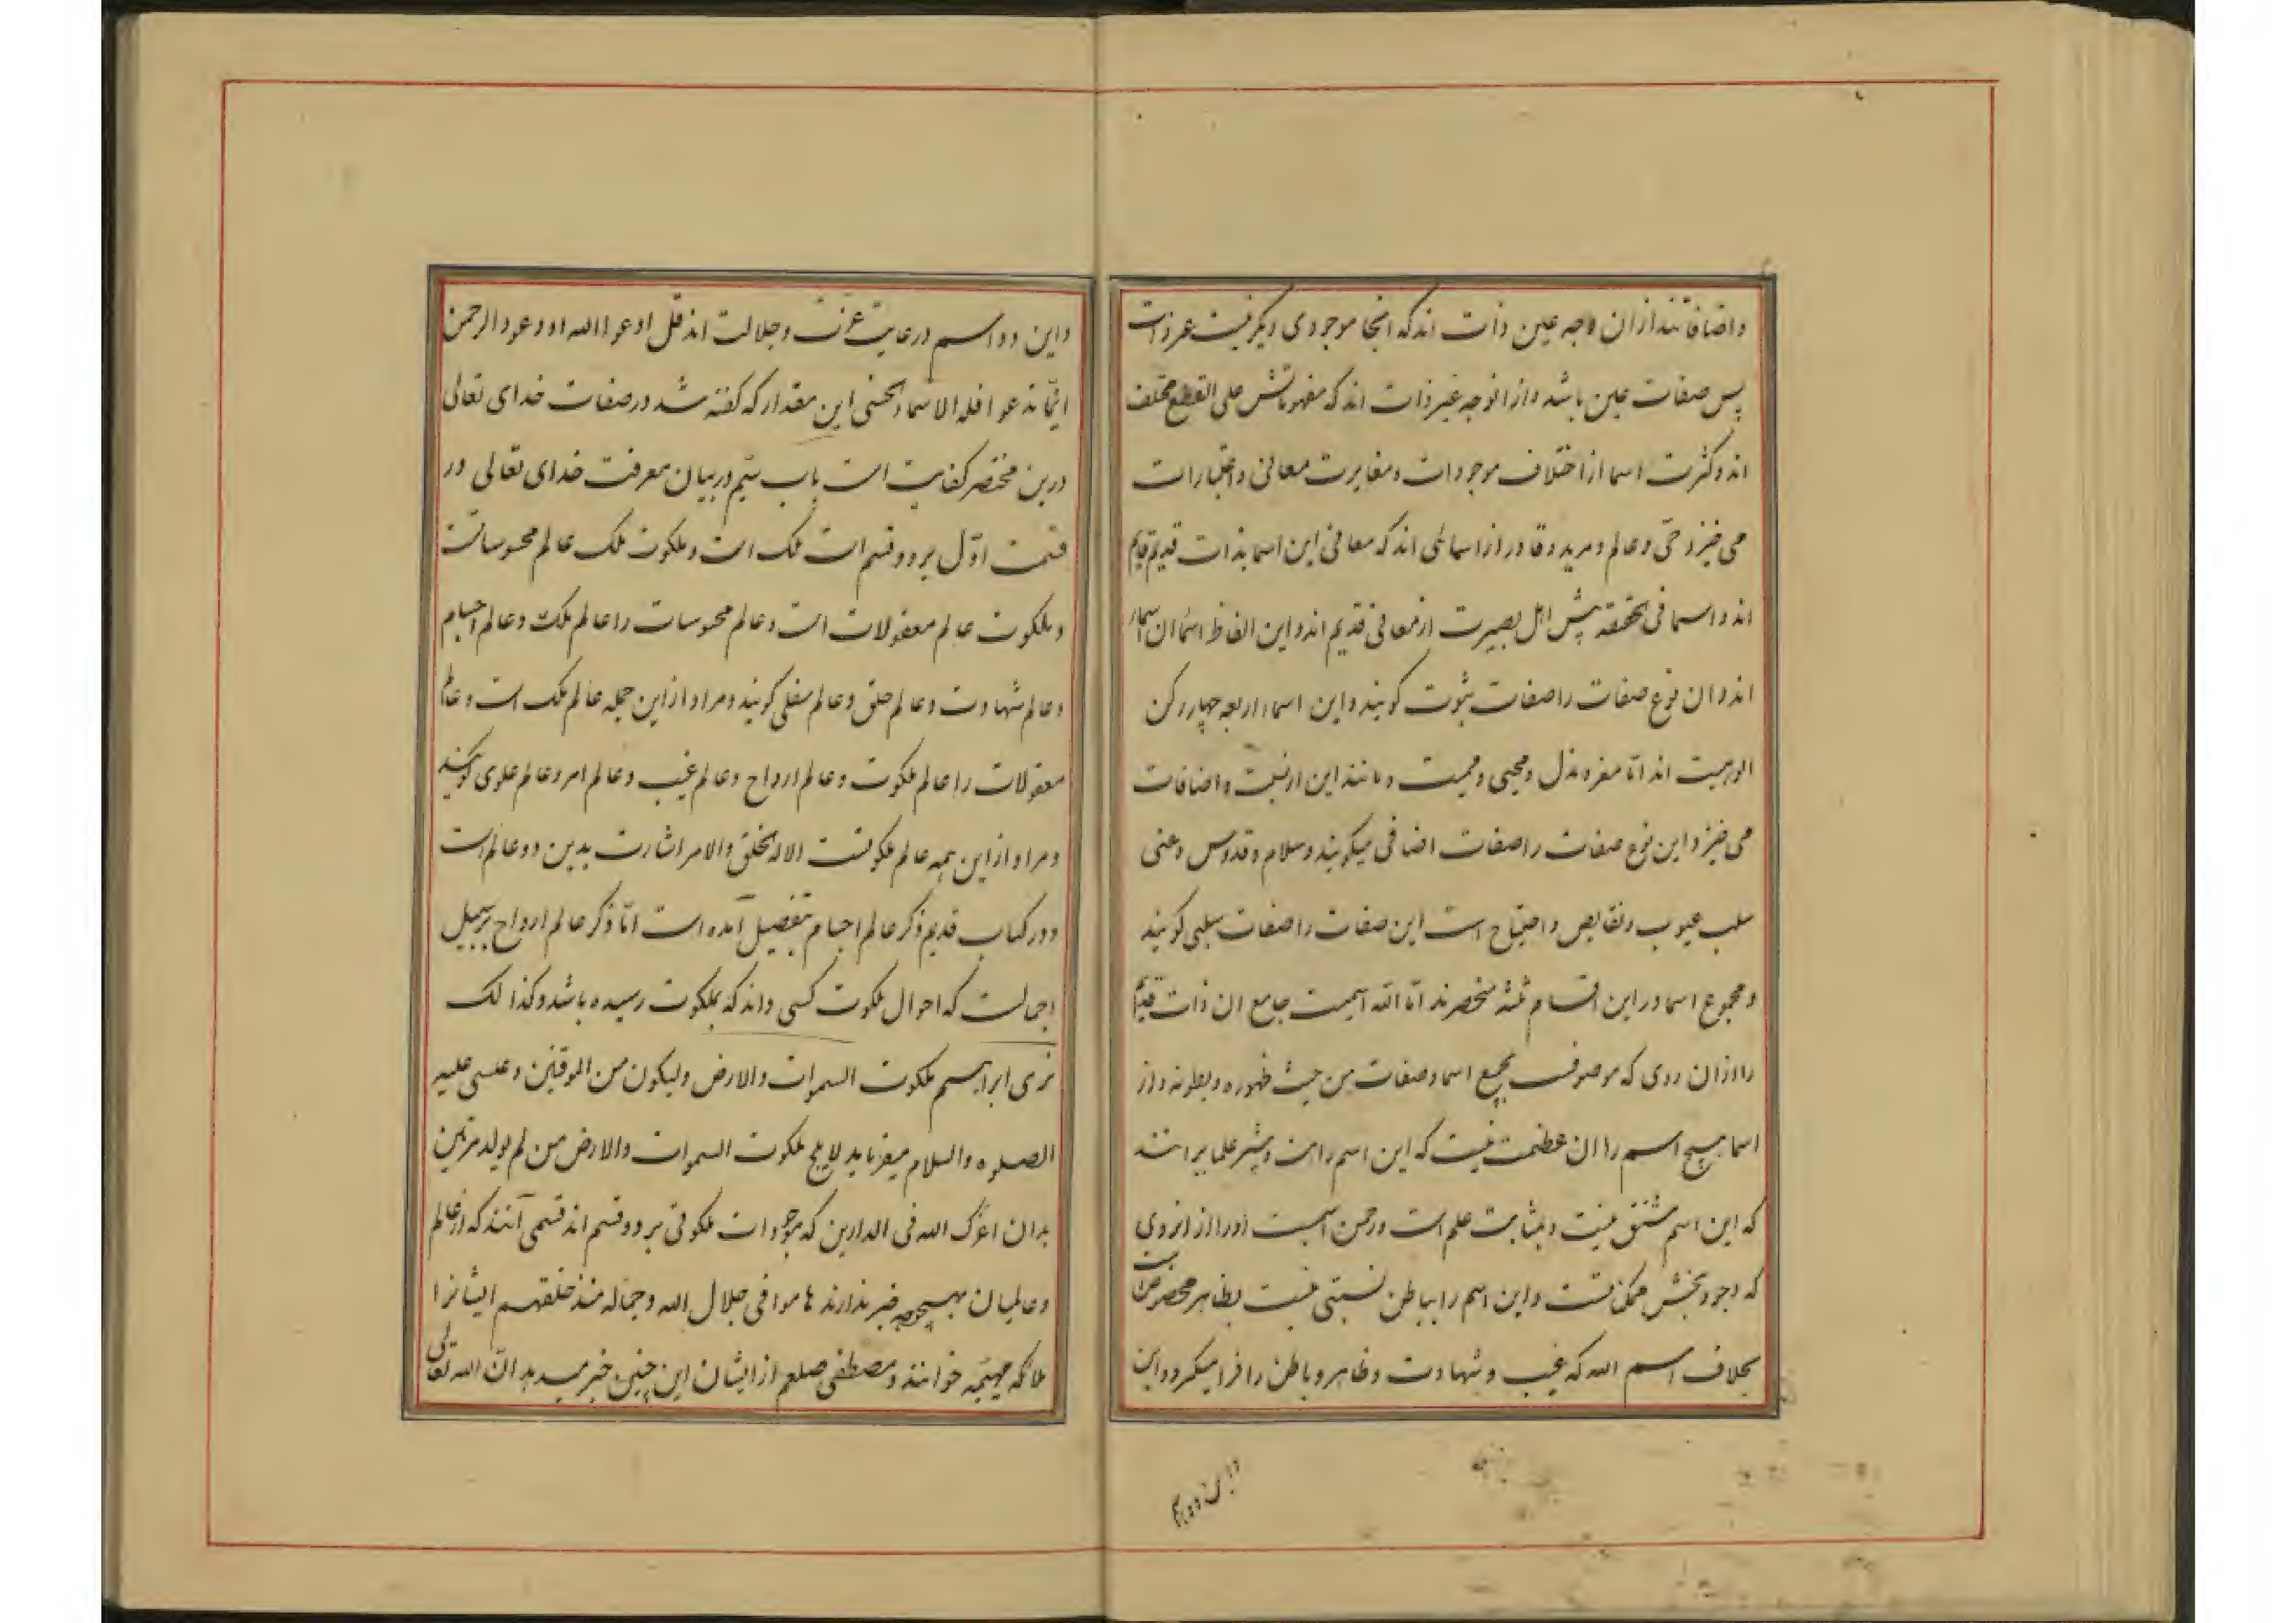 واضافاتند ازان وجه عین ذات اند که انجا موجودی دیکر نیست غیر ذات
پس صفات عین باشد واز انوجه غیر ذات اند که مفهوماتش علی القطع مختلف
اند وکثرت اسما از اختلاف موجودات ومغایرت معانی واعتبارات
می خیزد حی وعالم ومرید وقادر از اسمائی اند که معانی این اسما بذات قدیم قایم
اند واسما فی الحقیقه پیش اهل بصیرت ازمعانی قدیم اند واین الفاظ اسماان اسما
اند وان نوع صفات را صفات ثبوت کویند واین اسماء اربعه چهار رکن
الوهیت اند اما معز ومذل ومحیی وممیت ومانند این از نسبت واضافات
می خیزد واین نوع صفات را صفات اضافی میکویند وسلام وقدوس وغنی
سلب عیوب ونقایص واحتیاج است این صفات را صفات سلبی کویند
ومجموع اسما در این اقسام ثلثه منحصرند اما الله اسمیست جامع ان ذات قدیم
را ازان روی که موصوف بجمیع اسما وصفات من حیث ظهوره وبطونه واز
اسما هیچ اسم را ان عظمت نیست که این اسم راست وبیشتر علما برانند
که این اسم مشتق نیست وبمثابت علم است ورحمن اسمیست اورا از انروی
که وجود بخش ممکناتست واین اسم را بباطن نسبتی نیست بظاهر مخصوص است
بخلاف اسم الله که غیب وشهادت وظاهر وباطن را فرا میکرد واین
واین دو اسم درغایت عزت وجلالت اند قل ادعوا الله او دعود الرحمن
ایّما تدعو افله الاسماء الحسنی این مقدار که کفته شد ورصفات خدای تعالی
درین مختصر کفایت است باب سیّم دربیان معرفت خدای تعالی در
قسمت اوّل بر دو قسم است ملک است وملکوت ملک عالم محسوساتست
وملکوت عالم معقولات است وعالم محسوسات را عالم ملک وعالم اجسام
وعالم شهادت وعالم خلق وعالم سفلی کویند ومراد از این جمله عالم ملک است وعالم
معقولات را عالم ملکوت وعالم ارواح وعالم غیب وعالم امر وعالم علوی کویند
ومراد از این همه عالم ملکوتست الاله الخلق والامر اشارت بدین دو عالم است
ودر کتاب قدیم ذکر عالم اجسام بتفصیل آمده است امّا ذکر عالم ارواح برسبیل
اجمالست که احوال ملکوت کسی داند که بملکوت رسیده باشد وکذالک
نری ابراهیم ملکوت السموات والارض ولیکون من الموقنین وعیسی علیه
الصلوه والسلام میفرماید لایلج ملکوت السموات والارض من لم یولد مرتین
بدان اعزک الله فی الدارین که موجودات ملکوتی بر دو قسم اند قسمی آنند که از عالم
وعالمیان بهیچوجه خبر ندارند هاموا فی جلال الله وجماله منذ خلقهم ایشانرا
ملائکه مهیّمه خوانند ومصطفی صلعم از ایشان این چنین خبر میدهد انّ الله تعالی